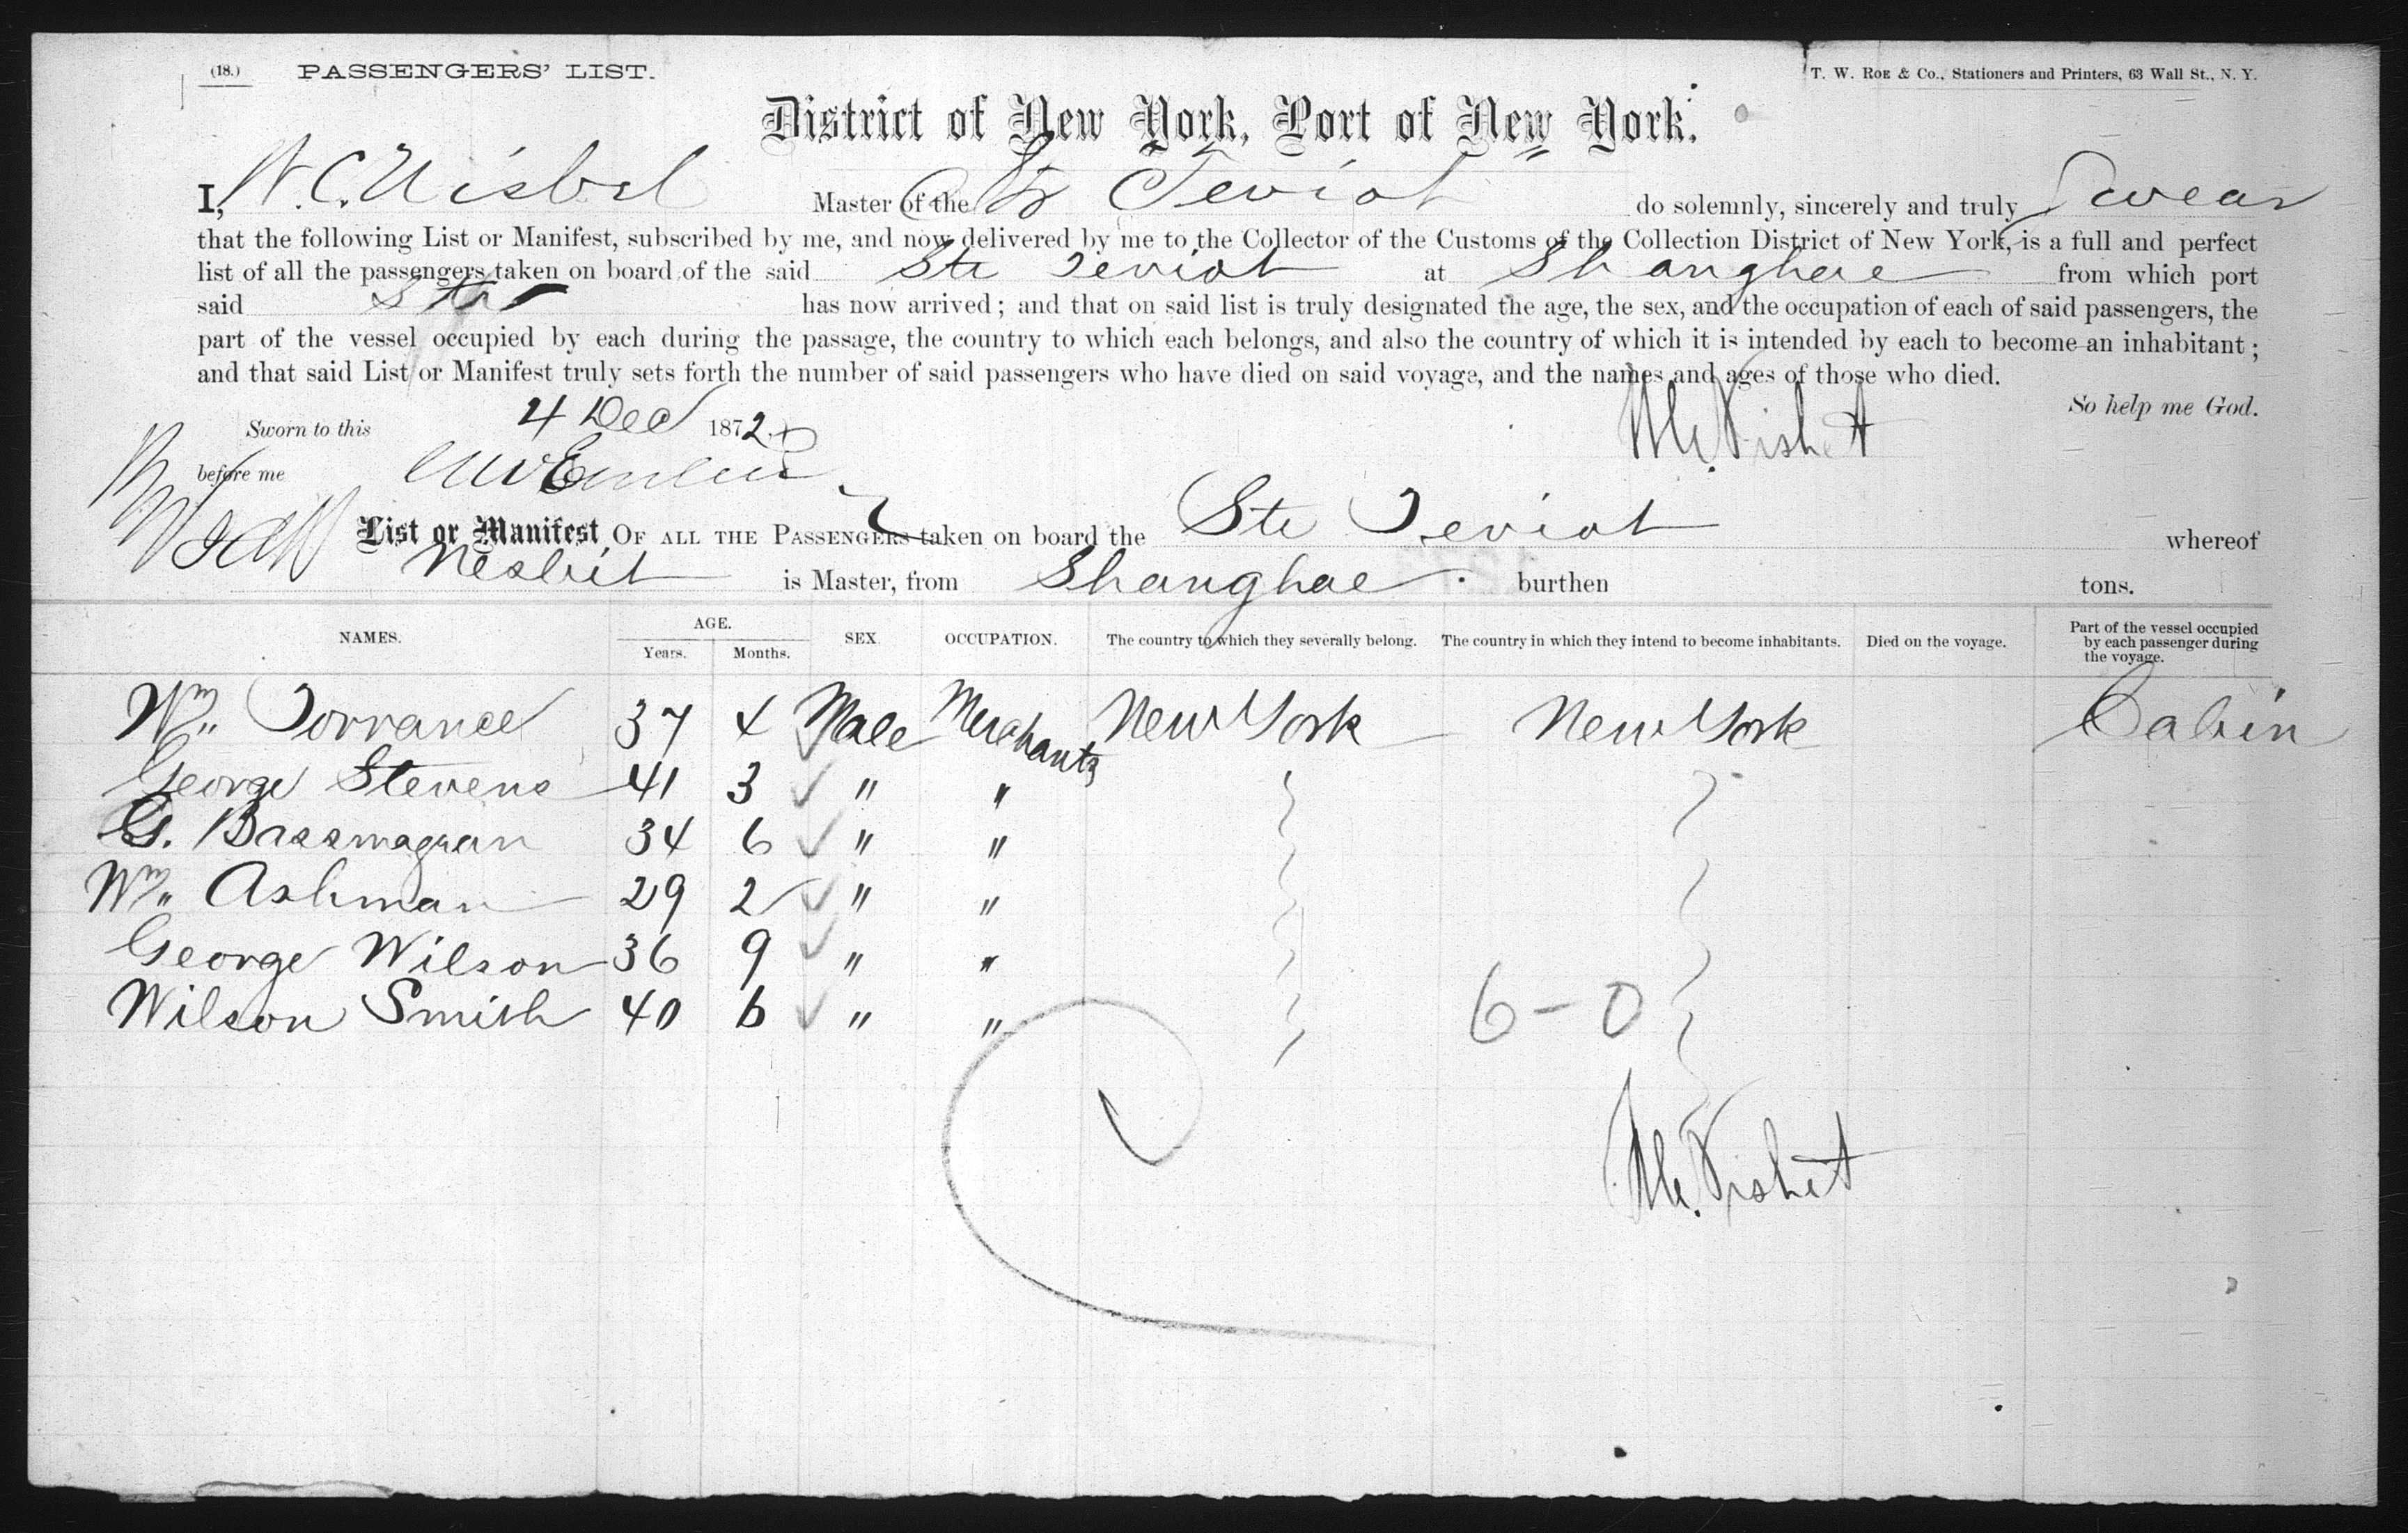 (18.) PASSENGERS' LIST.
T. W. ROE & Co., Stationers and Printers, 63 Wall St., N. Y.
District of New York, Port of New York.
I, W. C. Nisbet Master of the Str Teviot do solemnly, sincerely and truly Swear
that the following List or Manifest, subscribed by me, and now delivered by me to the Collector of the Customs of the Collection District of New York, is a full and perfect
list of all the passengers taken on board of the said Ste Teviot at Shanghae from which port
said Str has now arrived; and that on said list is truly designated the age, the sex, and the occupation of each of said passengers, the
part of the vessel occupied by each during the passage, the country to which each belongs, and also the country of which it is intended by each to become an inhabitant;
and that said List or Manifest truly sets forth the number of said passengers who have died on said voyage, and the names and ages of those who died.
So help me God.
Sworn to this 4 Dec 1872
Nisbet
before me
List or Manifest OF ALL THE PASSENGERS taken on board the Ste Teviot whereof
Nesbit is Master, from Shanghae. burthen tons.
NAMES. AGE. Years. Months. SEX. OCCUPATION. The country to which they severally belong. The country in which they intend to become inhabitants. Died on the voyage. Part of the vessel occupied by each passenger during the voyage.
Wm. Torrance 37 4 Male Merchants New York New York Cabin
George Stevens 41 3 " "
G. Bassmagean 34 6 " "
Wm. Ashman 29 2 " "
George Wilson 36 9 " "
Wilson Smith 40 6 " "
6-0
Nisbet